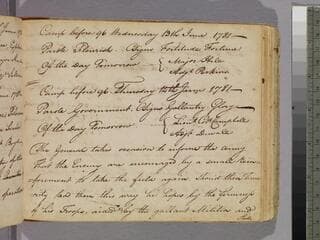 Camp before 96 Wednesday 13th June 1781
Parole Flourish CSigns Fortitude Fortune
Of the Day Tomorrow { Major Hill
Adjt Perkins
Camp before 96 Thursday 14th June 1781
Parole Government, CSigns Gallantry Glory
Of the Day Tomorrow { Lieut Col Campbell
Adjt Duvall
The General takes occasion to inform the army
that the Enemy are encouraged by a small rein-
forcement to take the field again. Should their Teme-
rity lead them this way he hopes by the firmness
of his Troops, aided by the gallant Militia and
State